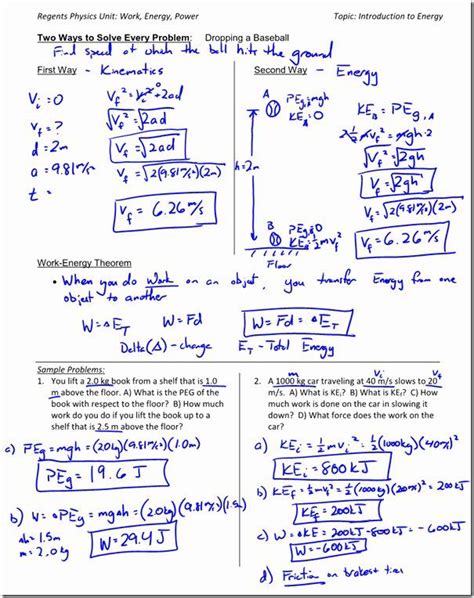 Regents Physics Unit: Work, Energy, Power Topic: Introduction to Energy
Two Ways to Solve Every Problem: Dropping a Baseball
Find speed at which the ball hits the ground
First Way - Kinematics
Vi = 0
Vf = ?
d = 2m
a = 9.81 m/s²
t =
Vf² = Vi² + 2ad
√Vf² = √2ad
Vf = √2ad
Vf = √2(9.81 m/s²)(2m)
Vf = 6.26 m/s
Second Way - Energy
A
PEg = mgh
KE = 0
h = 2m
B
PEg = 0
KE = ½mvf²
Floor
KEB = PEg,A
2 ½mvf² = mgh·2
√Vf² = √2gh
Vf = √2gh
Vf = √2(9.81 m/s²)(2m)
Vf = 6.26 m/s
Work-Energy Theorem
• When you do work on an object, you transfer Energy from one
object to another
W = ΔET
W = Fd
W = Fd = ΔET
Delta (Δ) - change
ET - Total Energy
Sample Problems:
1. You lift a 2.0 kg book from a shelf that is 1.0
m above the floor. A) What is the PEG of the
book with respect to the floor? B) How much
work do you do if you lift the book up to a
shelf that is 2.5 m above the floor?
a) PEg = mgh = (2.0kg)(9.81 m/s²)(1.0m)
PEg = 19.6 J
b) W = ΔPEg = mgΔh = (2.0kg)(9.81 m/s²)(1.5m)
Δh = 1.5m
m = 2.0kg
W = 29.4 J
m Vi Vf
2. A 1000 kg car traveling at 40 m/s slows to 20
m/s. A) What is KEi? B) What is KEf? C) How
much work is done on the car in slowing it
down? D) What force does the work on the
car?
a) KEi = ½mvi² = ½(1000kg)(40 m/s)²
KEi = 800 kJ
b) KEf = ½mvf² = ½(1000kg)(20 m/s)² = 200kJ
KEf = 200 kJ
c) W = ΔKE = 200kJ - 800kJ = -600kJ
W = -600kJ
d) Friction on brakes + tires